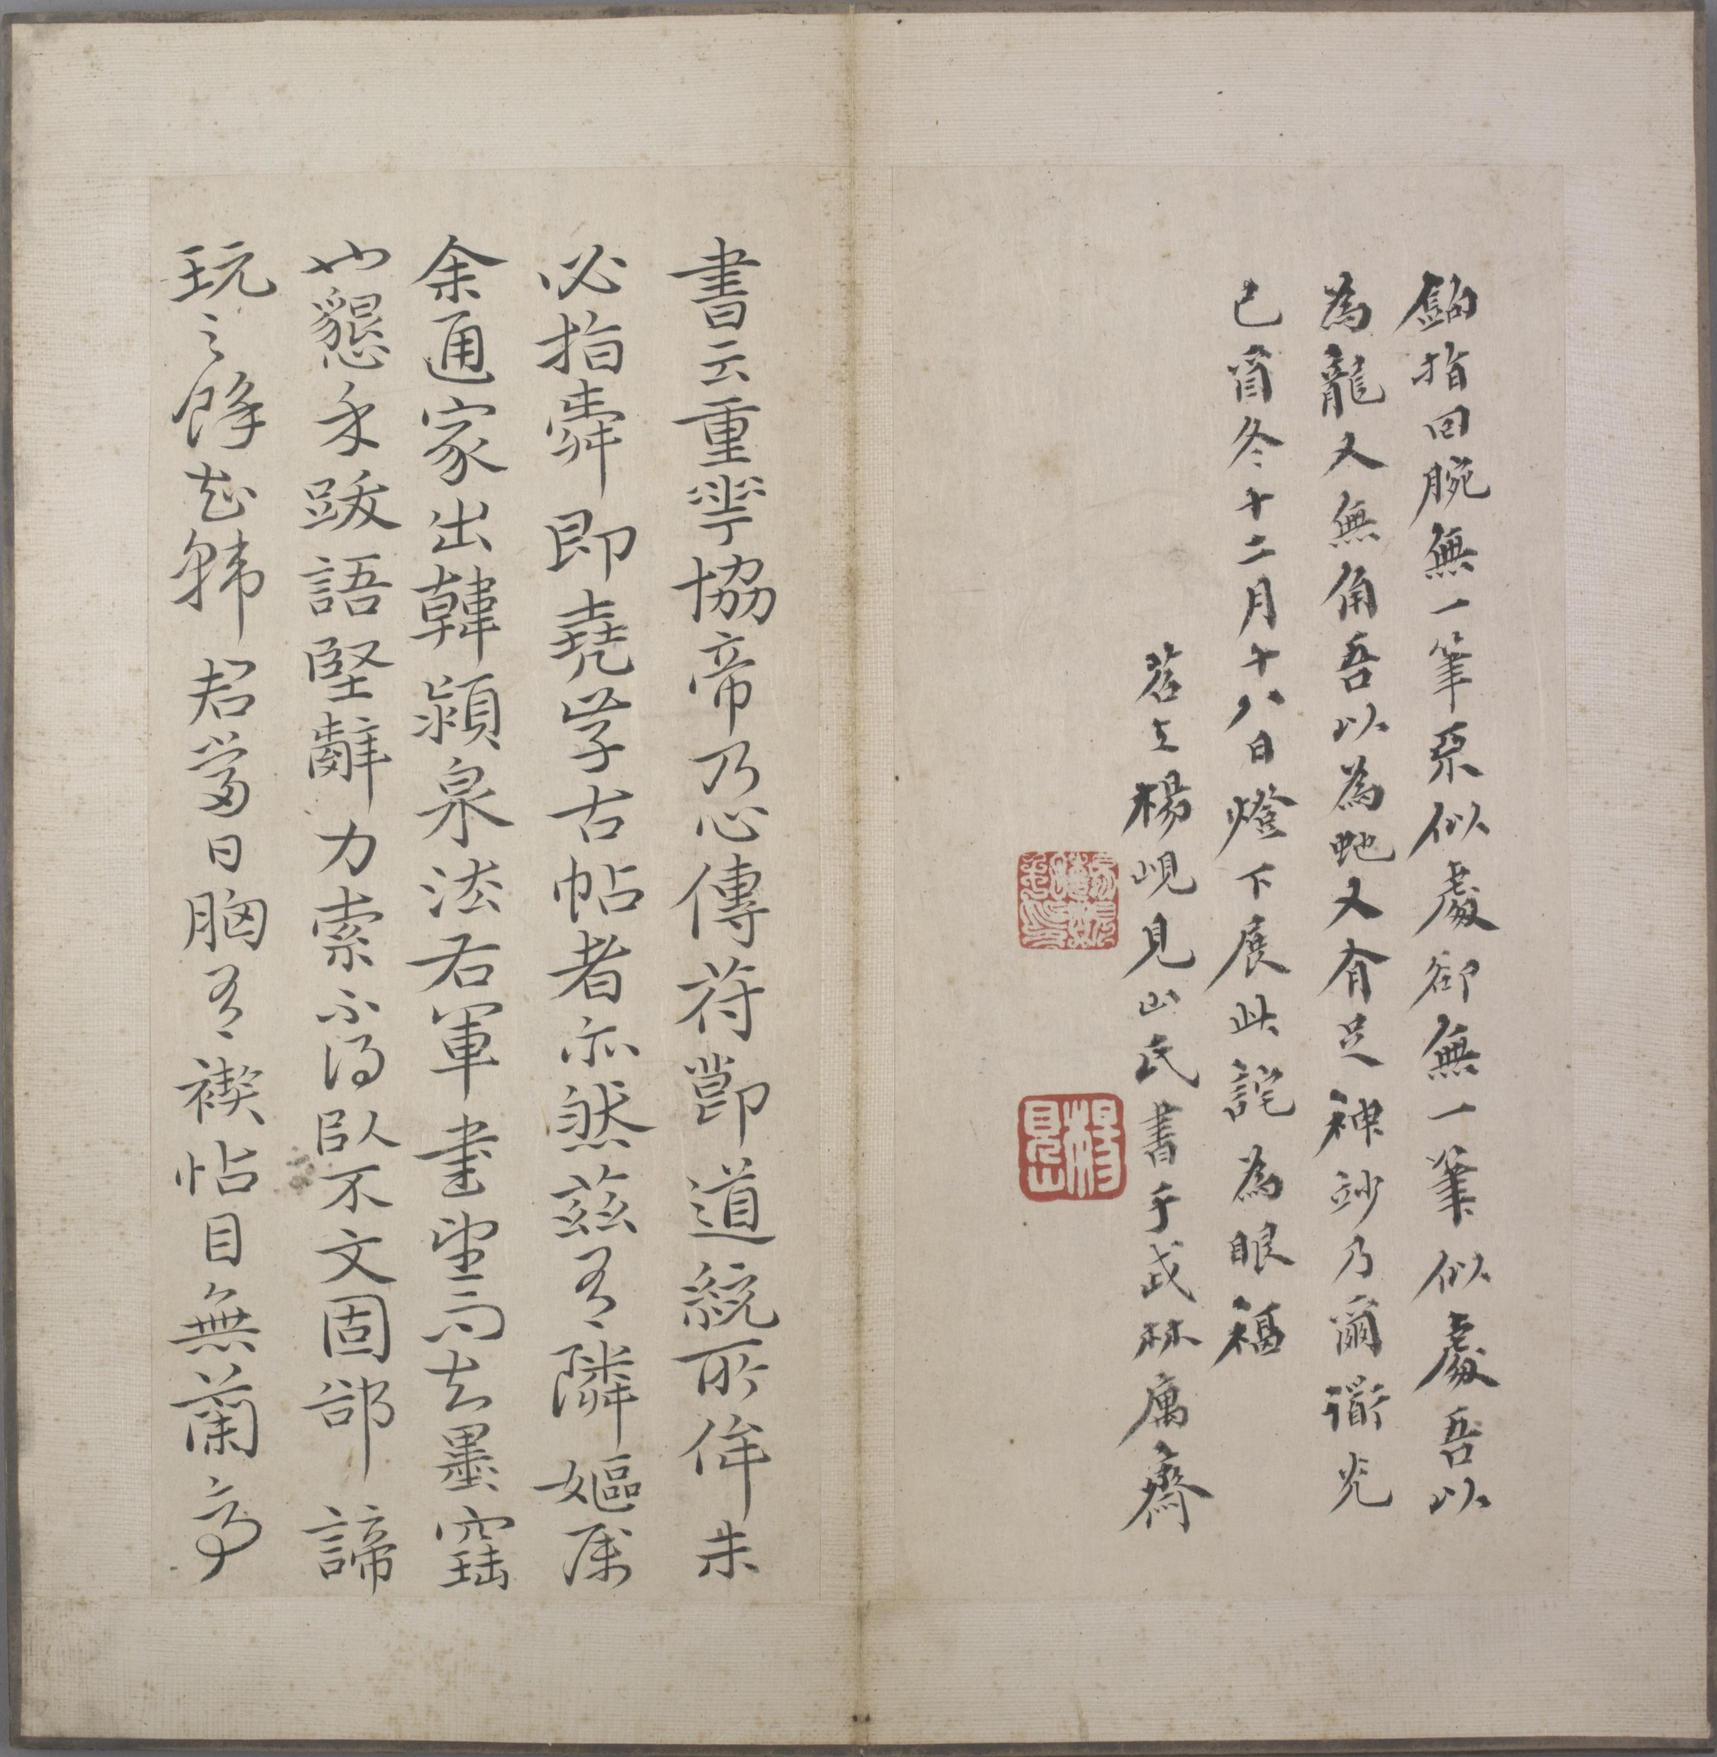 鉤指回腕無一筆系似處卻無一筆似處吾以
為龍又無角吾以為虵又有足神妙乃爾衢光
己酉冬十二月十八日燈下展此詫為眼福
苕上楊峴見山氏書于武林寓齋
楊峴
書云重華協帝乃心傳苻節道統所侔未
必指舜即堯學古帖者亦然茲有隣嫗屬
余通家出韓潁泉法右軍書塑而去墨
也懇禾跋語堅辭力索不得臥不文固卻諦
玩之餘知韓君當日胸有褉帖目無蘭亭